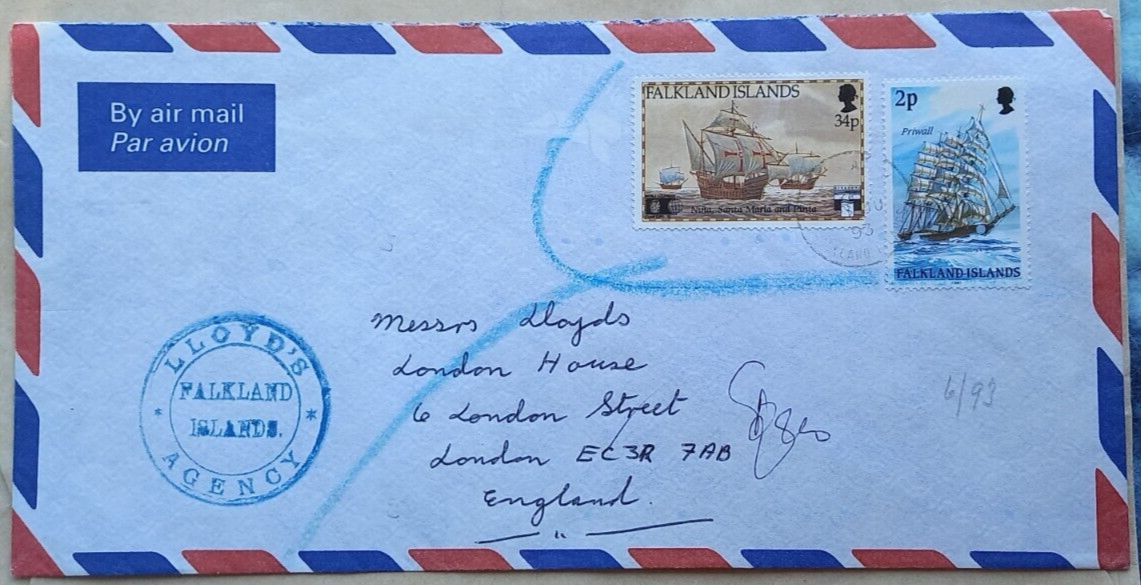 By air mail
Par avion
FALKLAND ISLANDS
34p
Niña, Santa Maria and Pinta
2p
Priwall
FALKLAND ISLANDS
93
LLOYD'S
FALKLAND
ISLANDS.
AGENCY
Messrs Lloyds
London House
6 London Street
London EC3R 7AB
England.
6/93